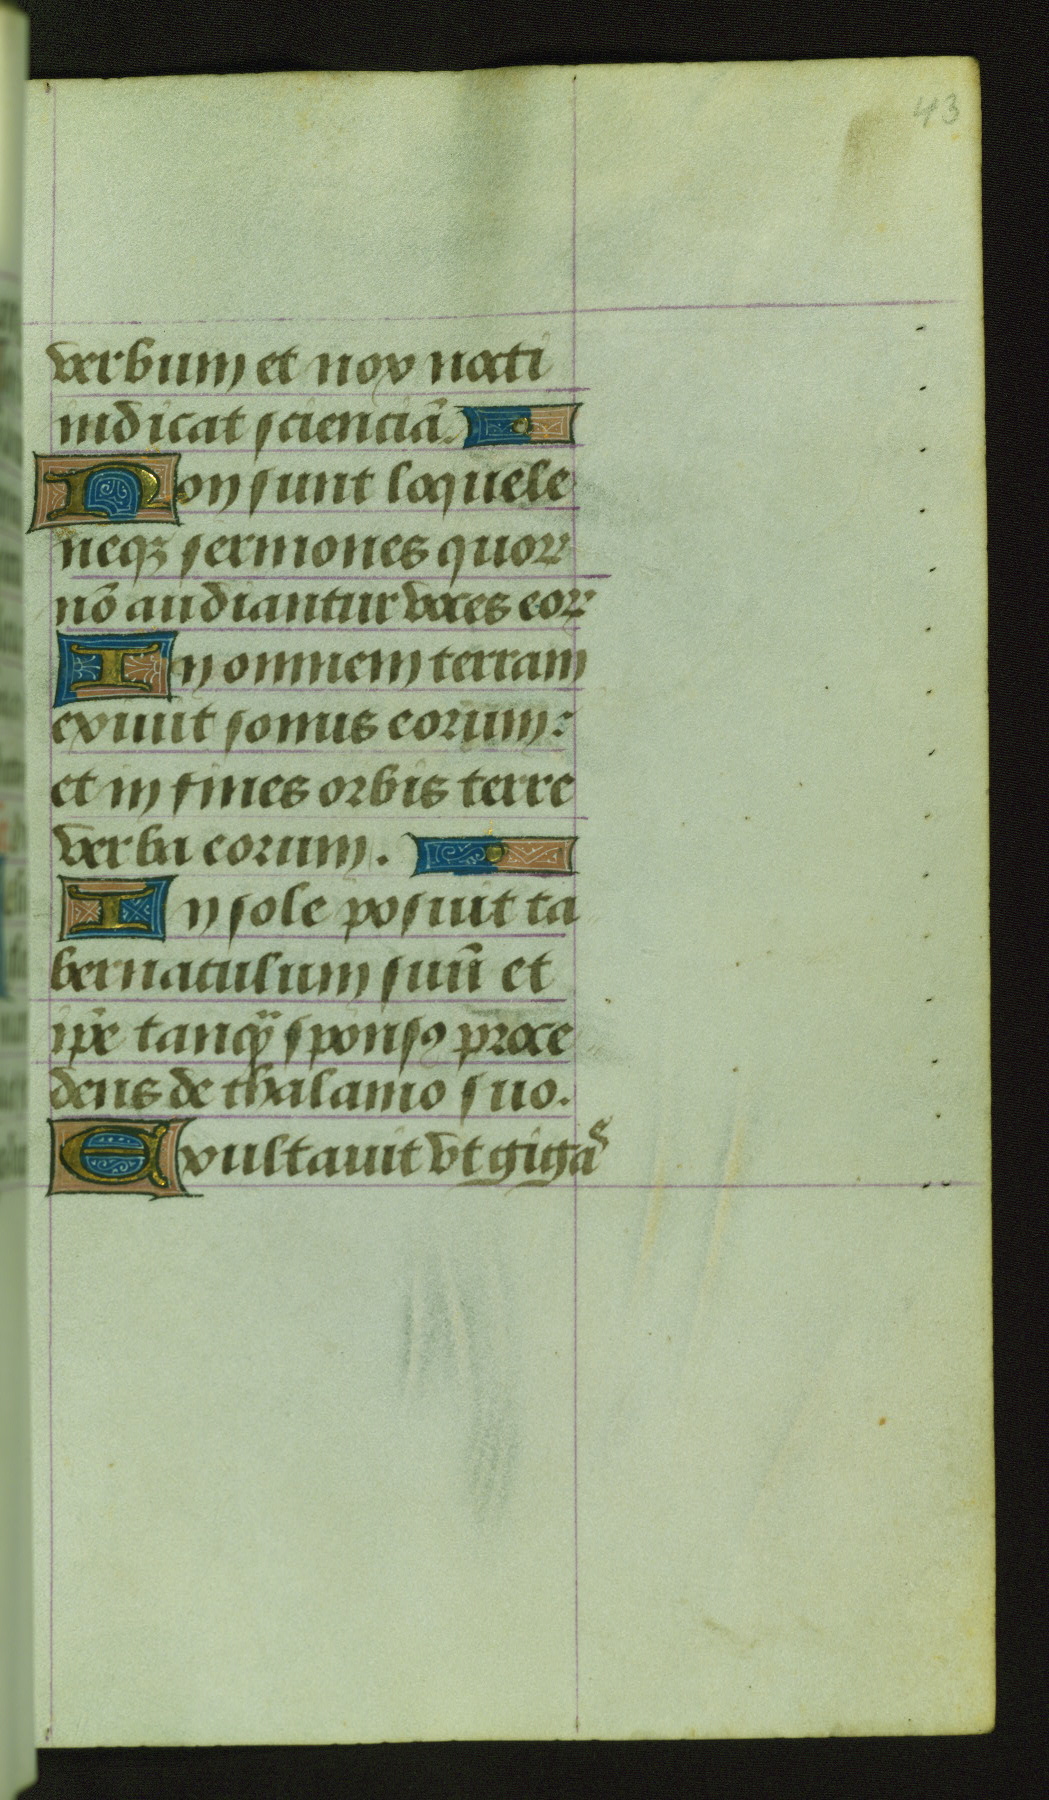 43
verbum et nox nocti
indicat scienciā.
Non sunt loquele
neqꝫ sermones quoꝝ
nō audiantur voces eoꝝ
In omnem terram
exiuit sonus eorum:
et in fines orbis terre
verba eorum.
In sole posuit ta
bernaculum suū et
ip̄e tanq̄ sponsꝯ proce
dens de thalamo suo.
Exultauit vt gigās